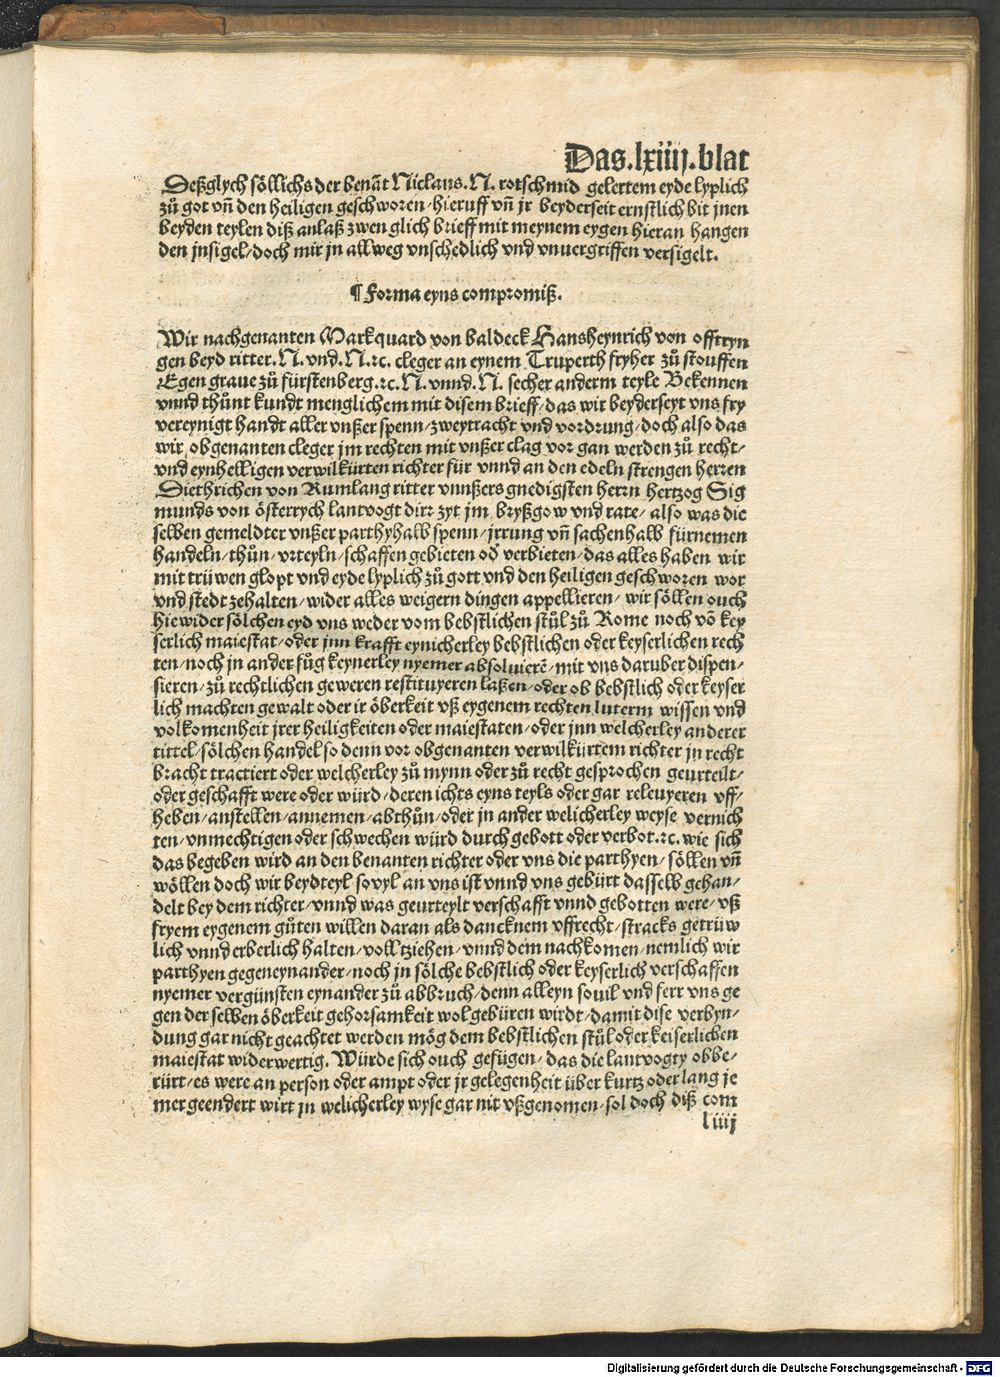 Das.lxiiij.blat
Deßglych söllichs der benāt Niclaus.N. rotschmid gelertem eyde lyplich
zů got vñ den heiligen geschworen/hieruff vñ jr beyderseit ernstlich bit jnen
beyden teylen diß anlaß zwen glich brieff mit meynem eygen hieran hangen
den jnsigel/doch mir jn allweg vnschedlich vnd vnuergriffen versigelt.
¶ Forma eyns compromiß.
Wir nachgenanten Markquard von baldeck Hansheynrich von offtryn
gen beyd ritter.N.vnd.N.ꝛc. cleger an eynem Truperth fryher zů stouffen
Egen graue zů fürstenberg.ꝛc.N.vnnd.N. secher anderm teyle Bekennen
vnnd thůnt kundt menglichem mit disem brieff/das wir beyderseyt vns fry
vereynigt handt aller vnßer spenn/zweytracht vnd vordrung/doch also das
wir obgenanten cleger jm rechten mit vnßer clag vor gan werden zů recht/
vnd eynhelligen verwilkürten richter für vnnd an den edeln strengen herren
Diethrichen von Rumlang ritter vnnßers gnedigsten herrn hertzog Sig
munds von österrych lantvogt dirr zyt jm bryßgow vnd rate/also was die
selben gemeldter vnßer parthyhalb spenn/jrrung vñ sachenhalb fürnemen
handeln/thůn/vrteyln/schaffen gebieten od̄ verbieten/das alles haben wir
mit trüwen glopt vnd eyde lyplich zů gott vnd den heiligen geschworen wor
vnd stedt zehalten/wider alles weigern dingen appellieren/wir söllen ouch
hiewider sölchen eyd vns weder vom bebstlichen stůl zů Rome noch vō key
serlich maiestat/oder jnn krafft eynicherley bebstlichen oder keyserlichen rech
ten/noch jn ander fůg keynerley nyemer absoluierē/mit vns daruber dispen/
sieren/zů rechtlichen geweren restituyeren laßen/oder ob bebstlich oder keyser
lich machten gewalt oder ir öberkeit vß eygenem rechten luterm wissen vnd
volkomenheit jrer heiligkeiten oder maiestaten/oder jnn welcherley anderer
tittel/sölchen handel so denn vor obgenanten verwilkürtem richter jn recht
bracht tractiert oder welcherley zů mynn oder zů recht gesprochen geurteilt/
oder geschafft were oder würd/deren ichts eyns teyls oder gar releuyeren vff/
heben/anstellen/annemen/abthůn/oder jn ander welicherley weyse vernich
ten/vnmechtigen oder schwechen würd durch gebott oder verbot.ꝛc. wie sich
das begeben wird an den benanten richter oder vns die parthyen/söllen vñ
wöllen doch wir beydteyl so vyl an vns ist vnnd vns gebürt dasselb gehan/
delt bey dem richter/vnnd was geurteylt verschafft vnnd gebotten were/vß
fryem eygenem gůten willen daran als dancknem vffrecht/stracks getrüw
lich vnnd erberlich halten/volltziehen/vnnd dem nachkomen/nemlich wir
parthyen gegeneynander/noch jn sölche bebstlich oder keyserlich verschaffen
nyemer vergünsten eynander zů abbruch/denn alleyn souil vnd ferr vns ge
gen der selben öberkeit gehorsamkeit wol gebüren wirdt/damit dise verbyn/
dung gar nicht geachtet werden mög dem bebstlichen stůl oder keiserlichen
maiestat widerwertig. Würde sich ouch gefügen/das die lantvogty obbe/
rürt/es were an person oder ampt oder jr gelegenheit über kurtz oder lang je
mer geendert wirt jn welicherley wyse gar nit vßgenomen/sol doch diß com
l iiij
Digitalisierung gefördert durch die Deutsche Forschungsgemeinschaft - DFG